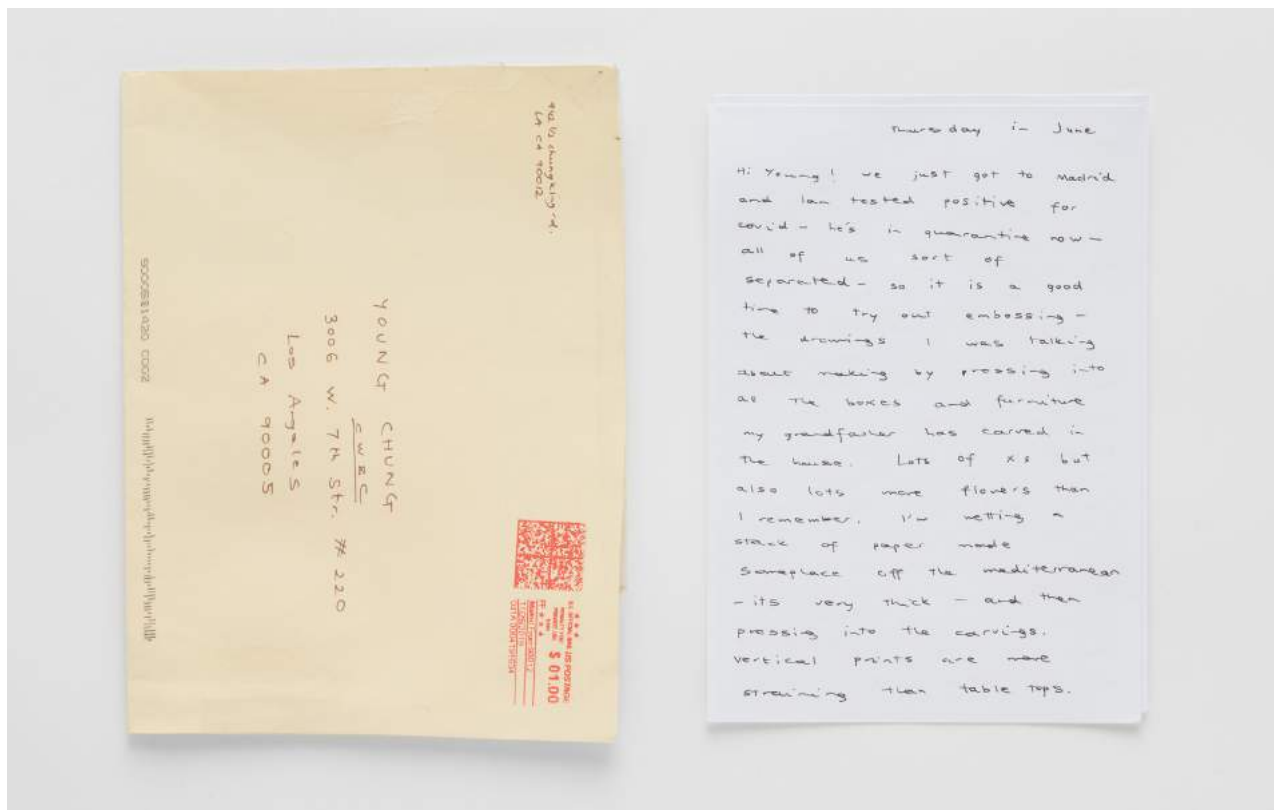 942 1/2 chung king rd.
LA CA 90012
YOUNG CHUNG
CWEC
3006 W. 7th Str. # 220
Los Angeles
CA 90005
US POSTAGE
$ 01.00
Thursday in June
Hi Young! we just got to Madrid
and Ian tested positive for
covid - he's in quarantine now -
all of us sort of
separated - so it is a good
time to try out embossing -
the drawings I was talking
about making by pressing into
all the boxes and furniture
my grandfather has carved in
the house. Lots of xs but
also lots more flowers than
I remember. I'm wetting a
stack of paper made
someplace off the mediterranean
- its very thick - and then
pressing into the carvings.
vertical prints are more
straining than table tops.